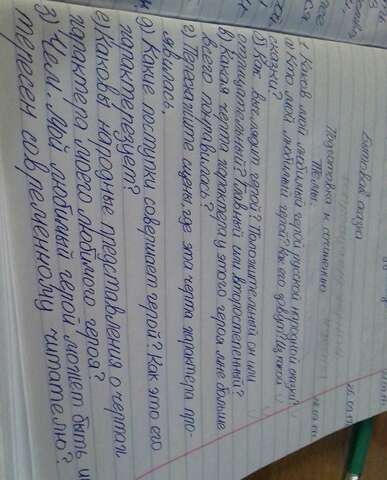 Бытовая сказка
Подготовка к сочинению
Темы:
1. Каков мой любимый герой русской народной
а) Кто мой любимый герой? Как его зовут? Из какой
сказки?
б) Как выглядит герой? Положительный он или
отрицательный? Главный или второстепенный?
в) Какая черта характера у этого героя мне больше
всего понравилась?
г) Перескажите сцены, где эта черта характера про-
явилась.
д) Какие поступки совершает герой? Как это его
характеризует?
е) Каковы народные представления о чертах
характера моего любимого героя?
з) Чем мой любимый герой может быть ин
тересен современному читателю?